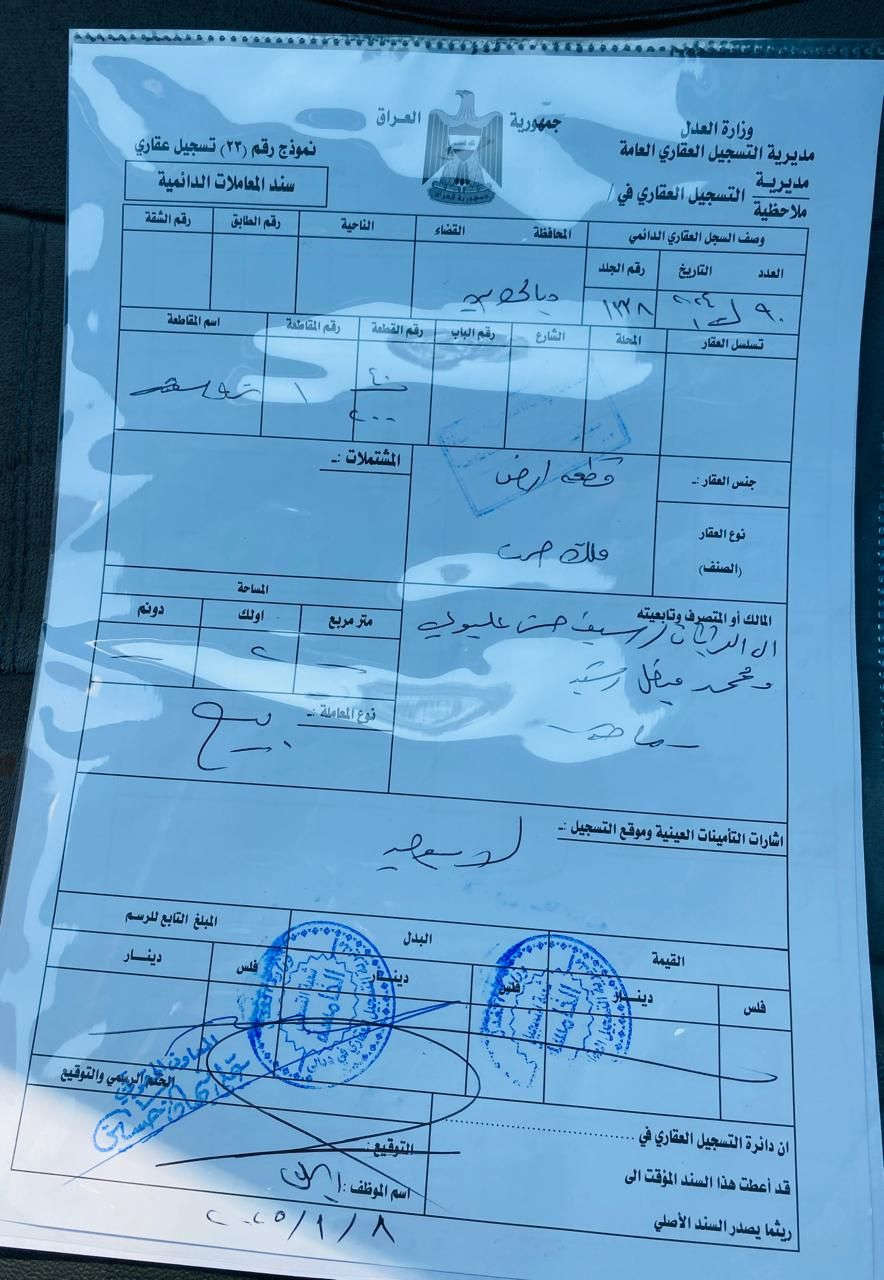 جمهورية العراق
وزارة العدل
مديرية التسجيل العقاري العامة
مديرية
ملاحظية
التسجيل العقاري في /
نموذج رقم (٢٣) تسجيل عقاري
سند المعاملات الدائمية
وصف السجل العقاري الدائمي
المحافظة
القضاء
الناحية
رقم الطابق
رقم الشقة
العدد
التاريخ
رقم الجلد
٩٠
٢٠٢٤
١٣٣٨
ديالى
تسلسل العقار
المحلة
الشارع
رقم الباب
رقم القطعة
رقم المقاطعة
اسم المقاطعة
٤٠
٢٠٠
١
جنس العقار :ـ
قطعه ارض
المشتملات :ـ
نوع العقار
(الصنف)
ملك صرف
المالك أو المتصرف وتابعيته
ومحمد فيصل رشيد
المساحة
متر مربع
اولك
دونم
ـ
٢
ـ
نوع المعاملة :ـ
بيع
اشارات التأمينات العينية وموقع التسجيل :ـ
لا يوجد
القيمة
البدل
المبلغ التابع للرسم
فلس
دينــار
فلس
دينــار
فلس
دينــار
الختم الرسمي والتوقيع
ان دائرة التسجيل العقاري في
قد أعطت هذا السند المؤقت الى
ريثما يصدر السند الأصلي
التوقيع :
اسم الموظف :
٢٠٢٥/١/٨